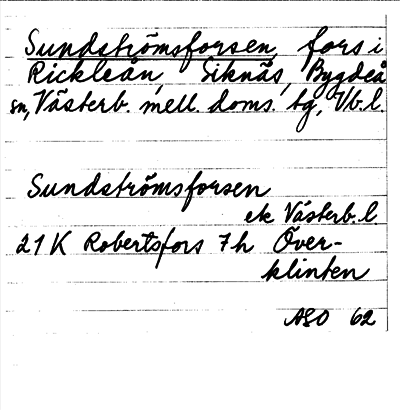 Sundströmsforsen, fors i
Rickleån, Siknäs, Bygdeå
sn, Västerb. mell. doms. tg, Vb.l.
Sundströmsforsen
ek Västerb.l.
21K Robertsfors 7h Över-
klinten
ASO 62